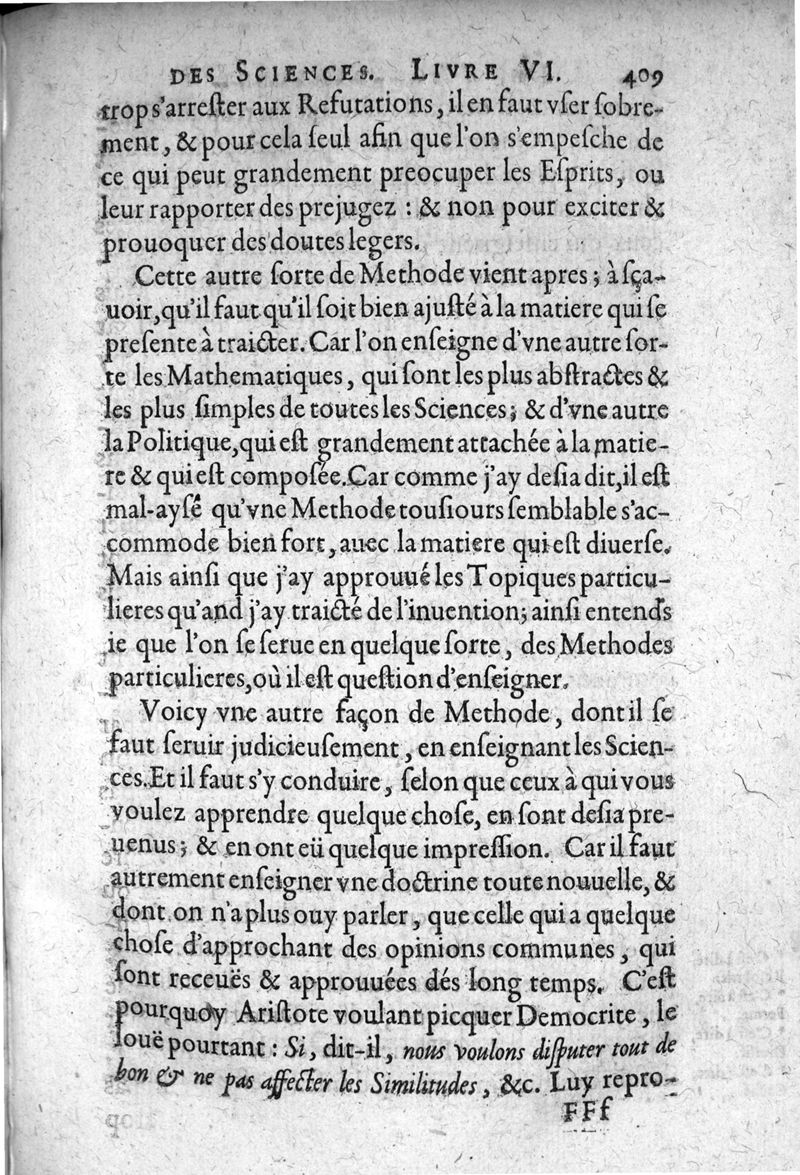 DES SCIENCES. LIVRE VI. 409
trop s'arreſter aux Refutations, il en faut vſer ſobre-
ment, & pour cela ſeul afin que l'on s'empeſche de
ce qui peut grandement preocuper les Eſprits, ou
leur rapporter des prejugez : & non pour exciter &
prouoquer des doutes legers.
Cette autre ſorte de Methode vient apres ; à ſça-
uoir, qu'il faut qu'il ſoit bien ajuſté à la matiere qui ſe
preſente à traicter. Car l'on enſeigne d'vne autre ſor-
te les Mathematiques, qui ſont les plus abſtractes &
les plus ſimples de toutes les Sciences ; & d'vne autre
la Politique, qui eſt grandement attachée à la matie-
re & qui eſt compoſée. Car comme j'ay deſia dit, il eſt
mal-ayſé qu'vne Methode touſiours ſemblable s'ac-
commode bien fort, auec la matiere qui eſt diuerſe.
Mais ainſi que j'ay approuué les Topiques particu-
lieres qu'and j'ay traicté de l'inuention ; ainſi entends
ie que l'on ſe ſerue en quelque ſorte, des Methodes
particulieres, où il eſt queſtion d'enſeigner.
Voicy vne autre façon de Methode, dont il ſe
faut ſeruir judicieuſement, en enſeignant les Scien-
ces. Et il faut s'y conduire, ſelon que ceux à qui vous
voulez apprendre quelque choſe, en ſont deſia pre-
uenus ; & en ont eü quelque impreſſion. Car il faut
autrement enſeigner vne doctrine toute nouuelle, &
dont on n'a plus ouy parler, que celle qui a quelque
choſe d'approchant des opinions communes, qui
ſont receuës & approuuées dés long temps. C'eſt
pourquoy Ariſtote voulant picquer Democrite, le
louë pourtant : Si, dit-il, nous voulons diſputer tout de
bon & ne pas affecter les Similitudes, &c. Luy repro-
FFf